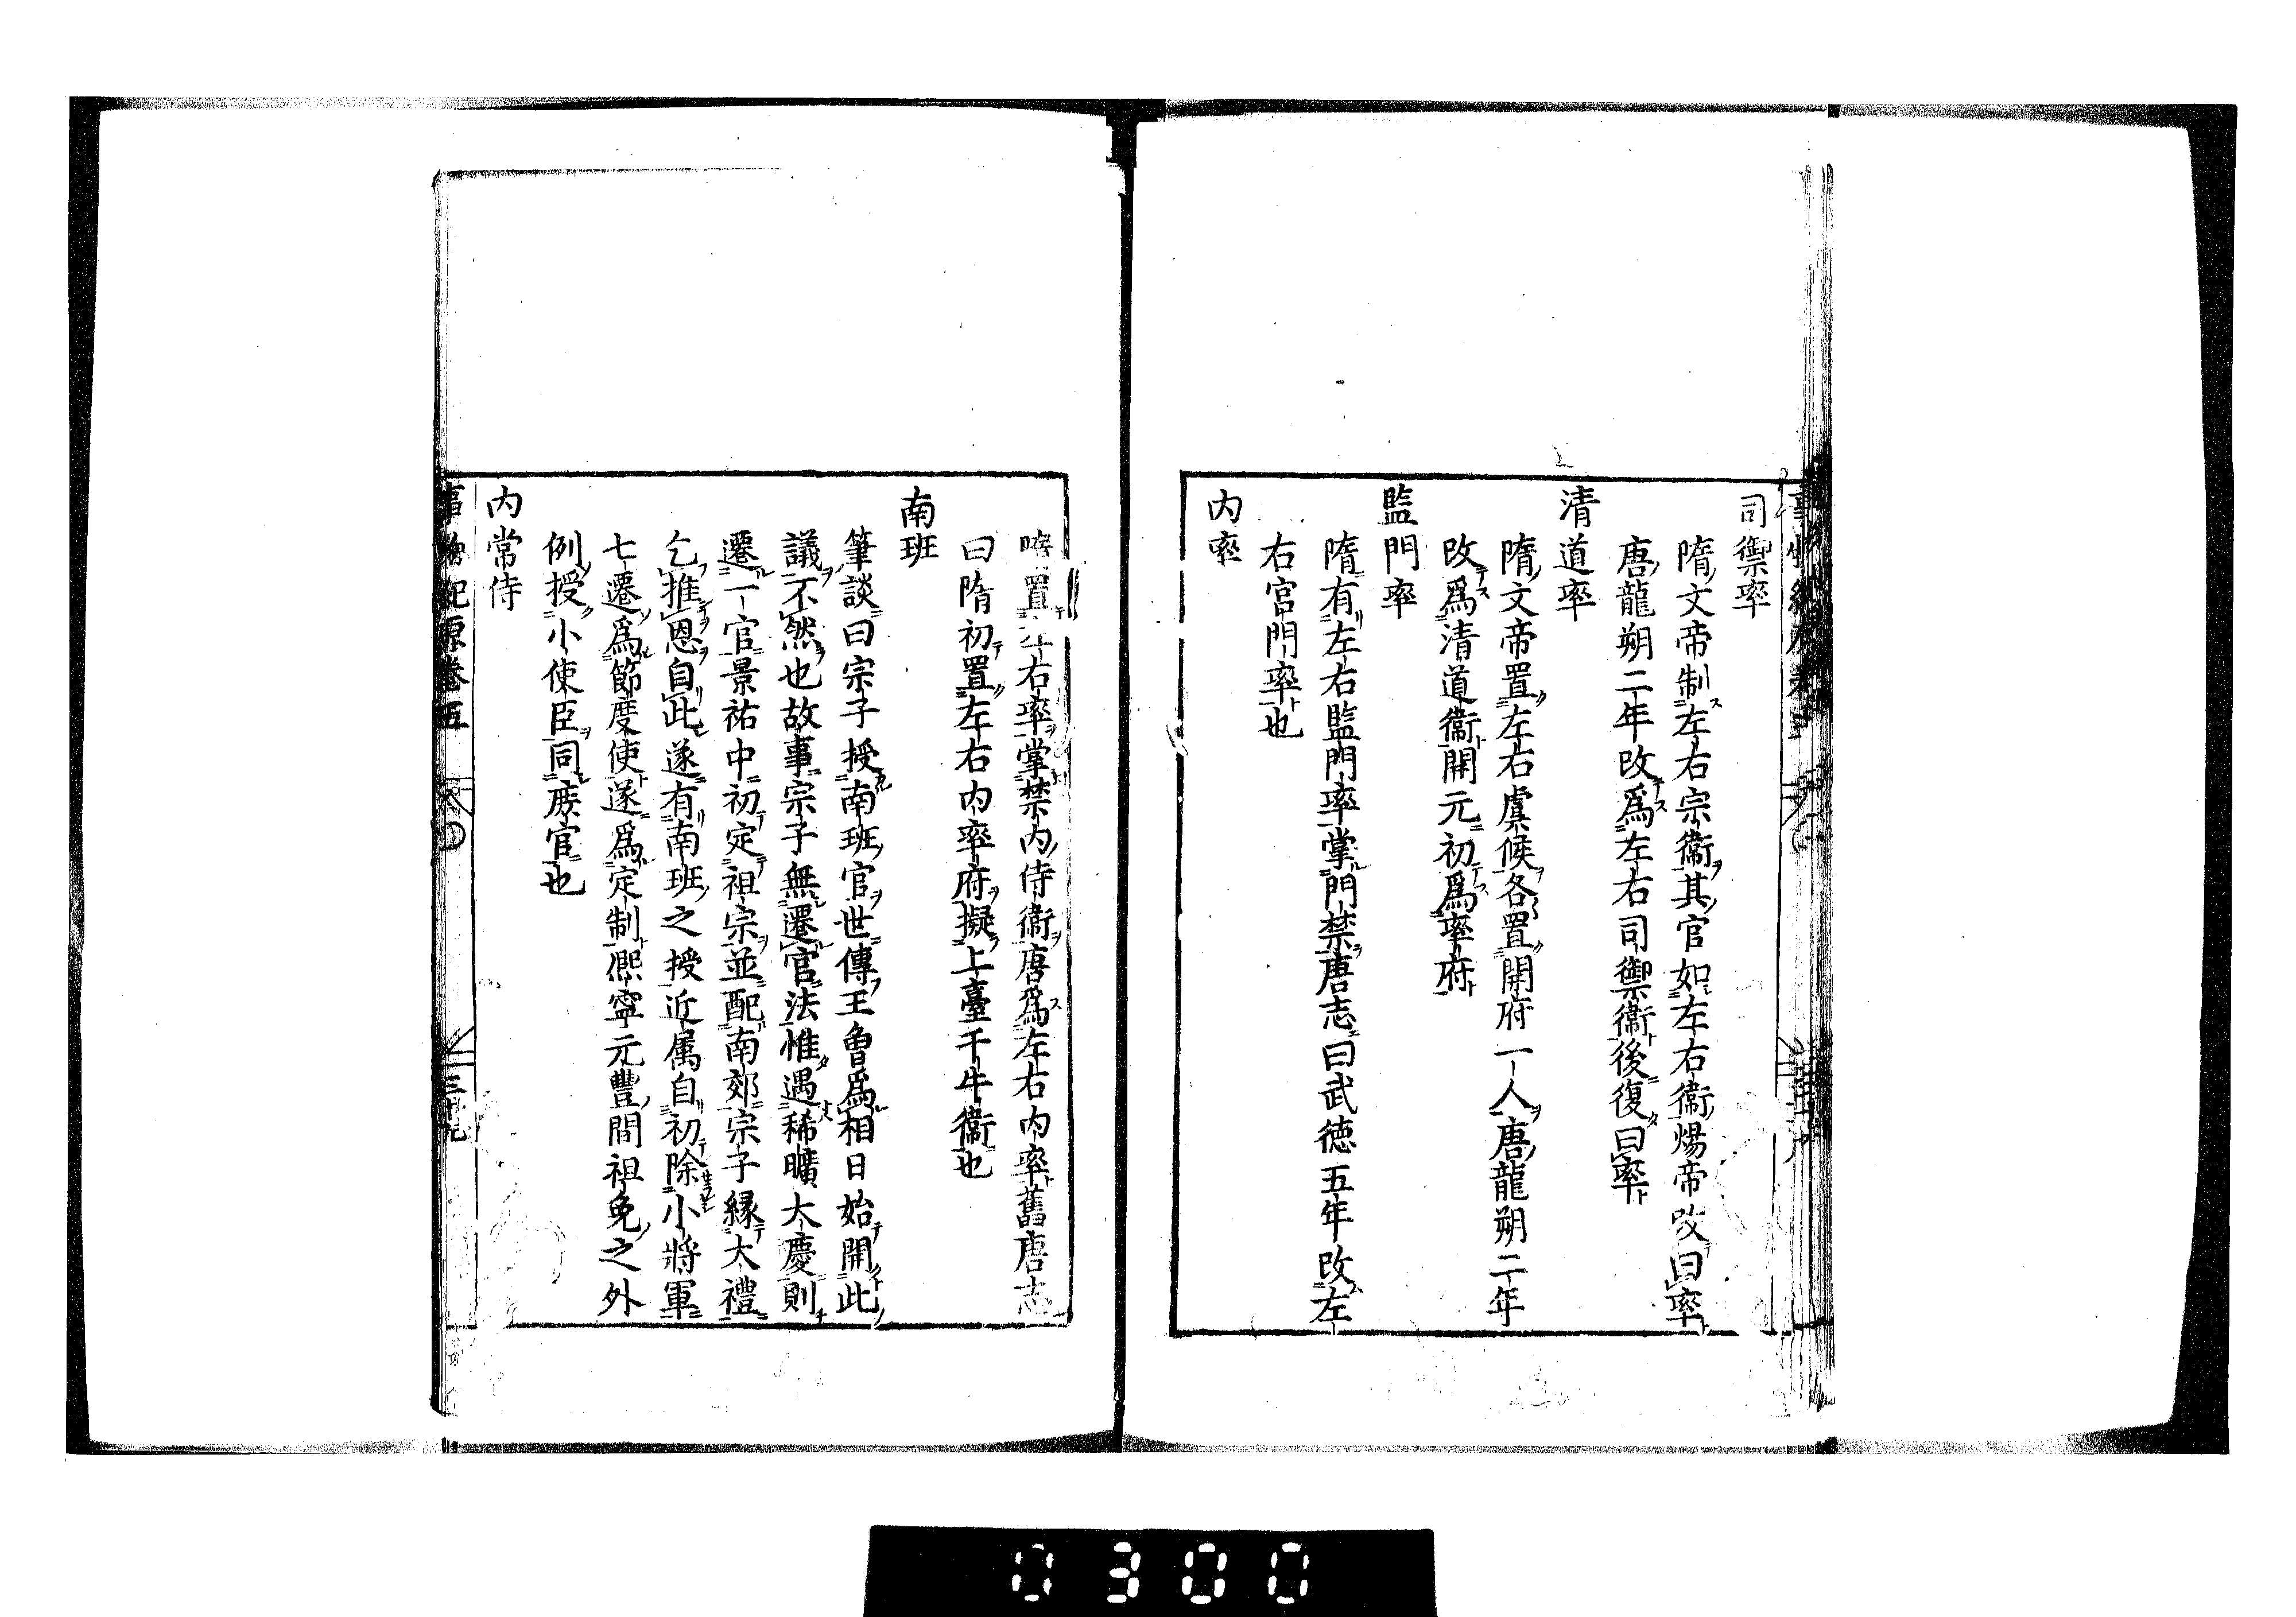 司禦率
隋文帝制左右宗衞其官如左右衞煬帝改曰率
唐龍朔二年改爲左右司禦衞後復曰率
清道率
隋文帝置左右虞候各置開府一人唐龍朔二年
改爲清道衞開元初爲率府
監門率
隋有左右監門率掌門禁唐志曰武德五年改左
右宮門率也
内率
隋置左右率掌禁内侍衞唐爲左右内率舊唐志
曰隋初置左右内率府擬上臺千牛衞也
南班
筆談曰宗子授南班官世傳王曾爲相日始開此
議不然也故事宗子無遷官法惟遇稀曠大慶則
遷一官景祐中初定祖宗並配南郊宗子縁大禮
乞推恩自此遂有南班之授近属自初除小將軍
七遷爲節度使遂爲定制熈寧元豐間祖免之外
例授小使臣同庶官也
内常侍
事物紀原卷五
三十九
0300